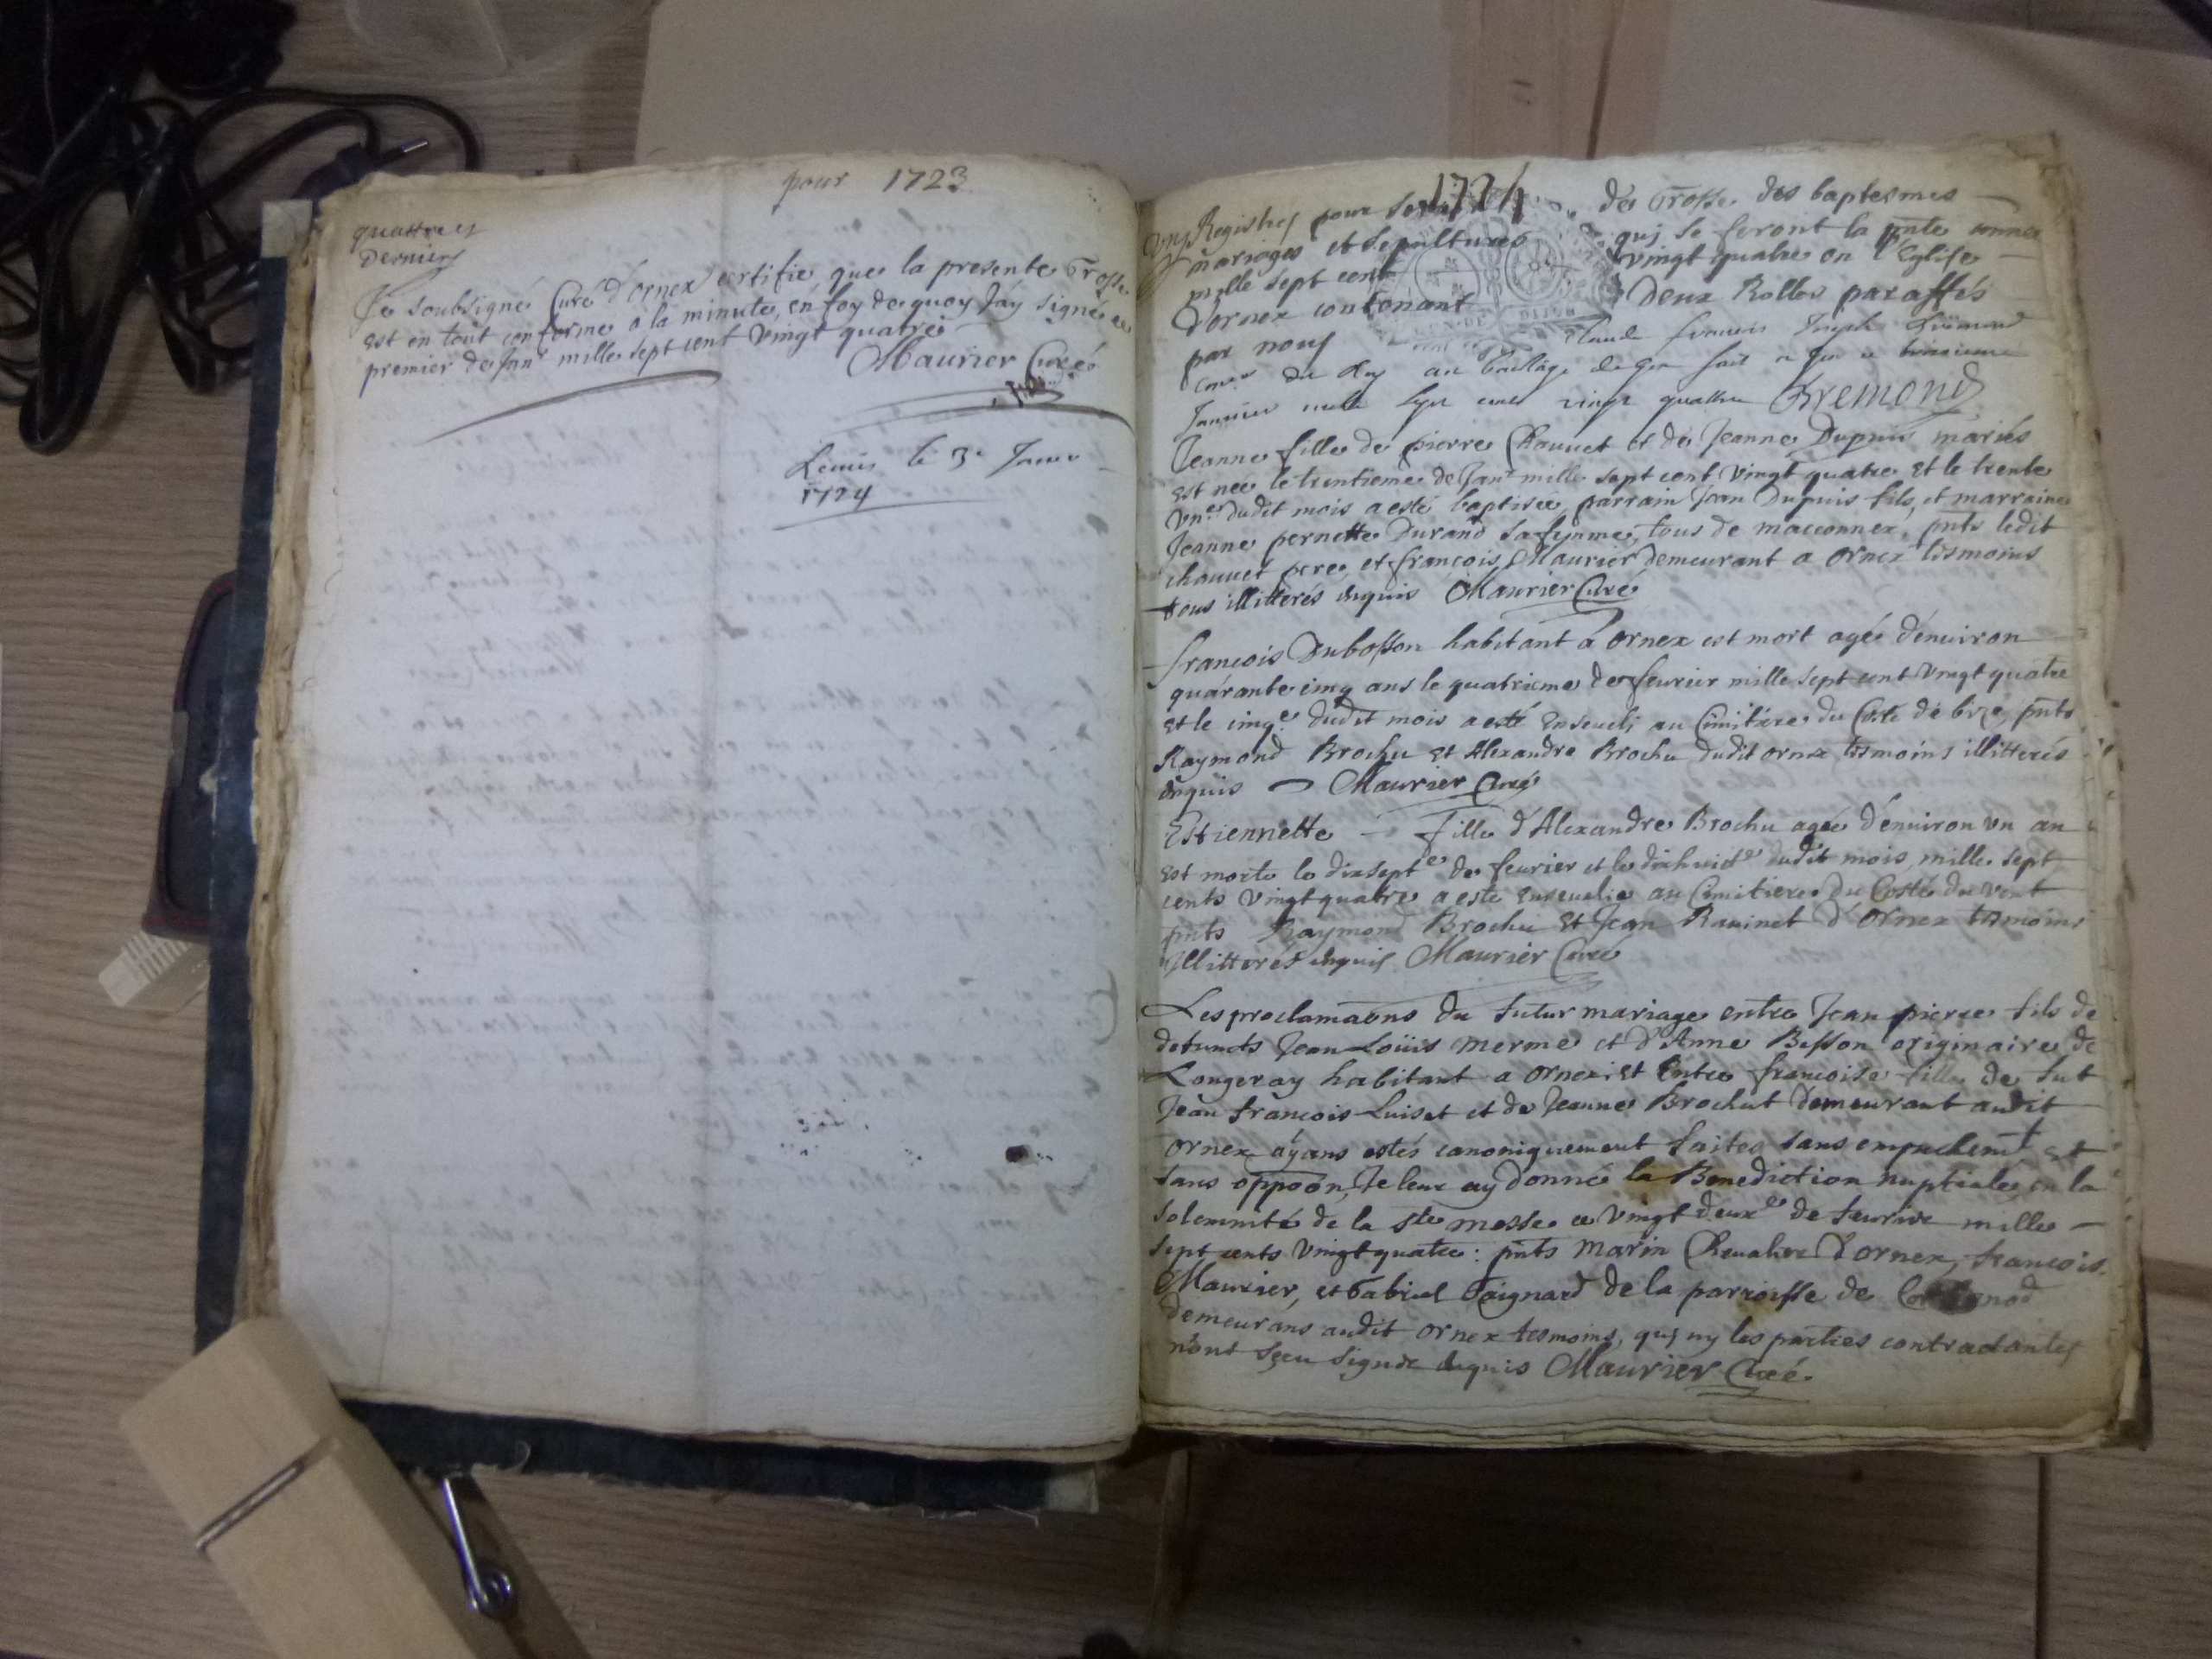 pour 1723
quattre et
Dernier
Je soubsigné Curé d'ornex certifie que la presente Grosse
est en tout conforme a la minute, en foy de quoy J'ay signé ce
premier de Janr mille sept cent vingt quatre
Maurier Curé
le 3e
1724
1724
Registres pour servir de Grosse des baptesmes
mariages et sepultures qui se feront la pnte année
mille sept cent vingt quatre en l'Eglise
d'ornex contenant deux Rolles paraffés
par nous Claude francois Joseph
du Roy au Bailliage de Gex fait a Gex ce
Janvier mille sept cent vingt quattre
Jeanne fille de pierre Chouuet et de Jeanne Dupuis mariés
est nee le trentieme de Janr mille sept cent vingt quatre et le trente
vne dudit mois a esté baptisée, parrain Jean Dupuis fils, et marraine
Jeanne pernette Durand sa femme, tous de maconnex, pnts ledit
chouuet pere, et francois Maurier demeurant a ornex tesmoins
tous illitterés enquis Maurier Curé
francois Dubosson habitant a ornex est mort agé d'enuiron
quarante cinq ans le quatrieme de feurier mille sept cent vingt quatre
et le cinqe dudit mois a esté enseueli au Cimitiere du Costé de bize, pnts
Raymond Brochu et Alexandre Brochu dudit ornex tesmoins illitterés
enquis Maurier Curé
Estiennette fille d'Alexandre Brochu agée d'enuiron vn an
est morte le dixsepte de feurier et le dixhuicte dudit mois mille sept
cents vingt quatre a esté enseuelie au Cimitiere du Costé du vent
pnts Raymond Brochu et Jean Rauinet d'ornex tesmoins
Illitterés enquis Maurier Curé
Les proclamaons du futur mariage entre Jean pierre fils de
defuncts Jean Loüis merme et d'Anne Besson originaire de
Longeray habitant a ornex; et Entre francoise fille de fut
Jean francois Luiset et de Jeanne Brochut demeurant audit
ornex ayans estés canoniquement faites sans empechemt et
sans oppoon, Je leur ay donné la Benediction nuptiale en la
solemnité de la ste messe ce vingt deuxe de feurier mille
sept cents vingt quatre: pnts marin Cheualier d'ornex, francois
Maurier, et Gabriel Goignard de la parroisse de
demeurans audit ornex tesmoins, qui ny les parties contractantes
n'ont sceu signer enquis Maurier Curé.